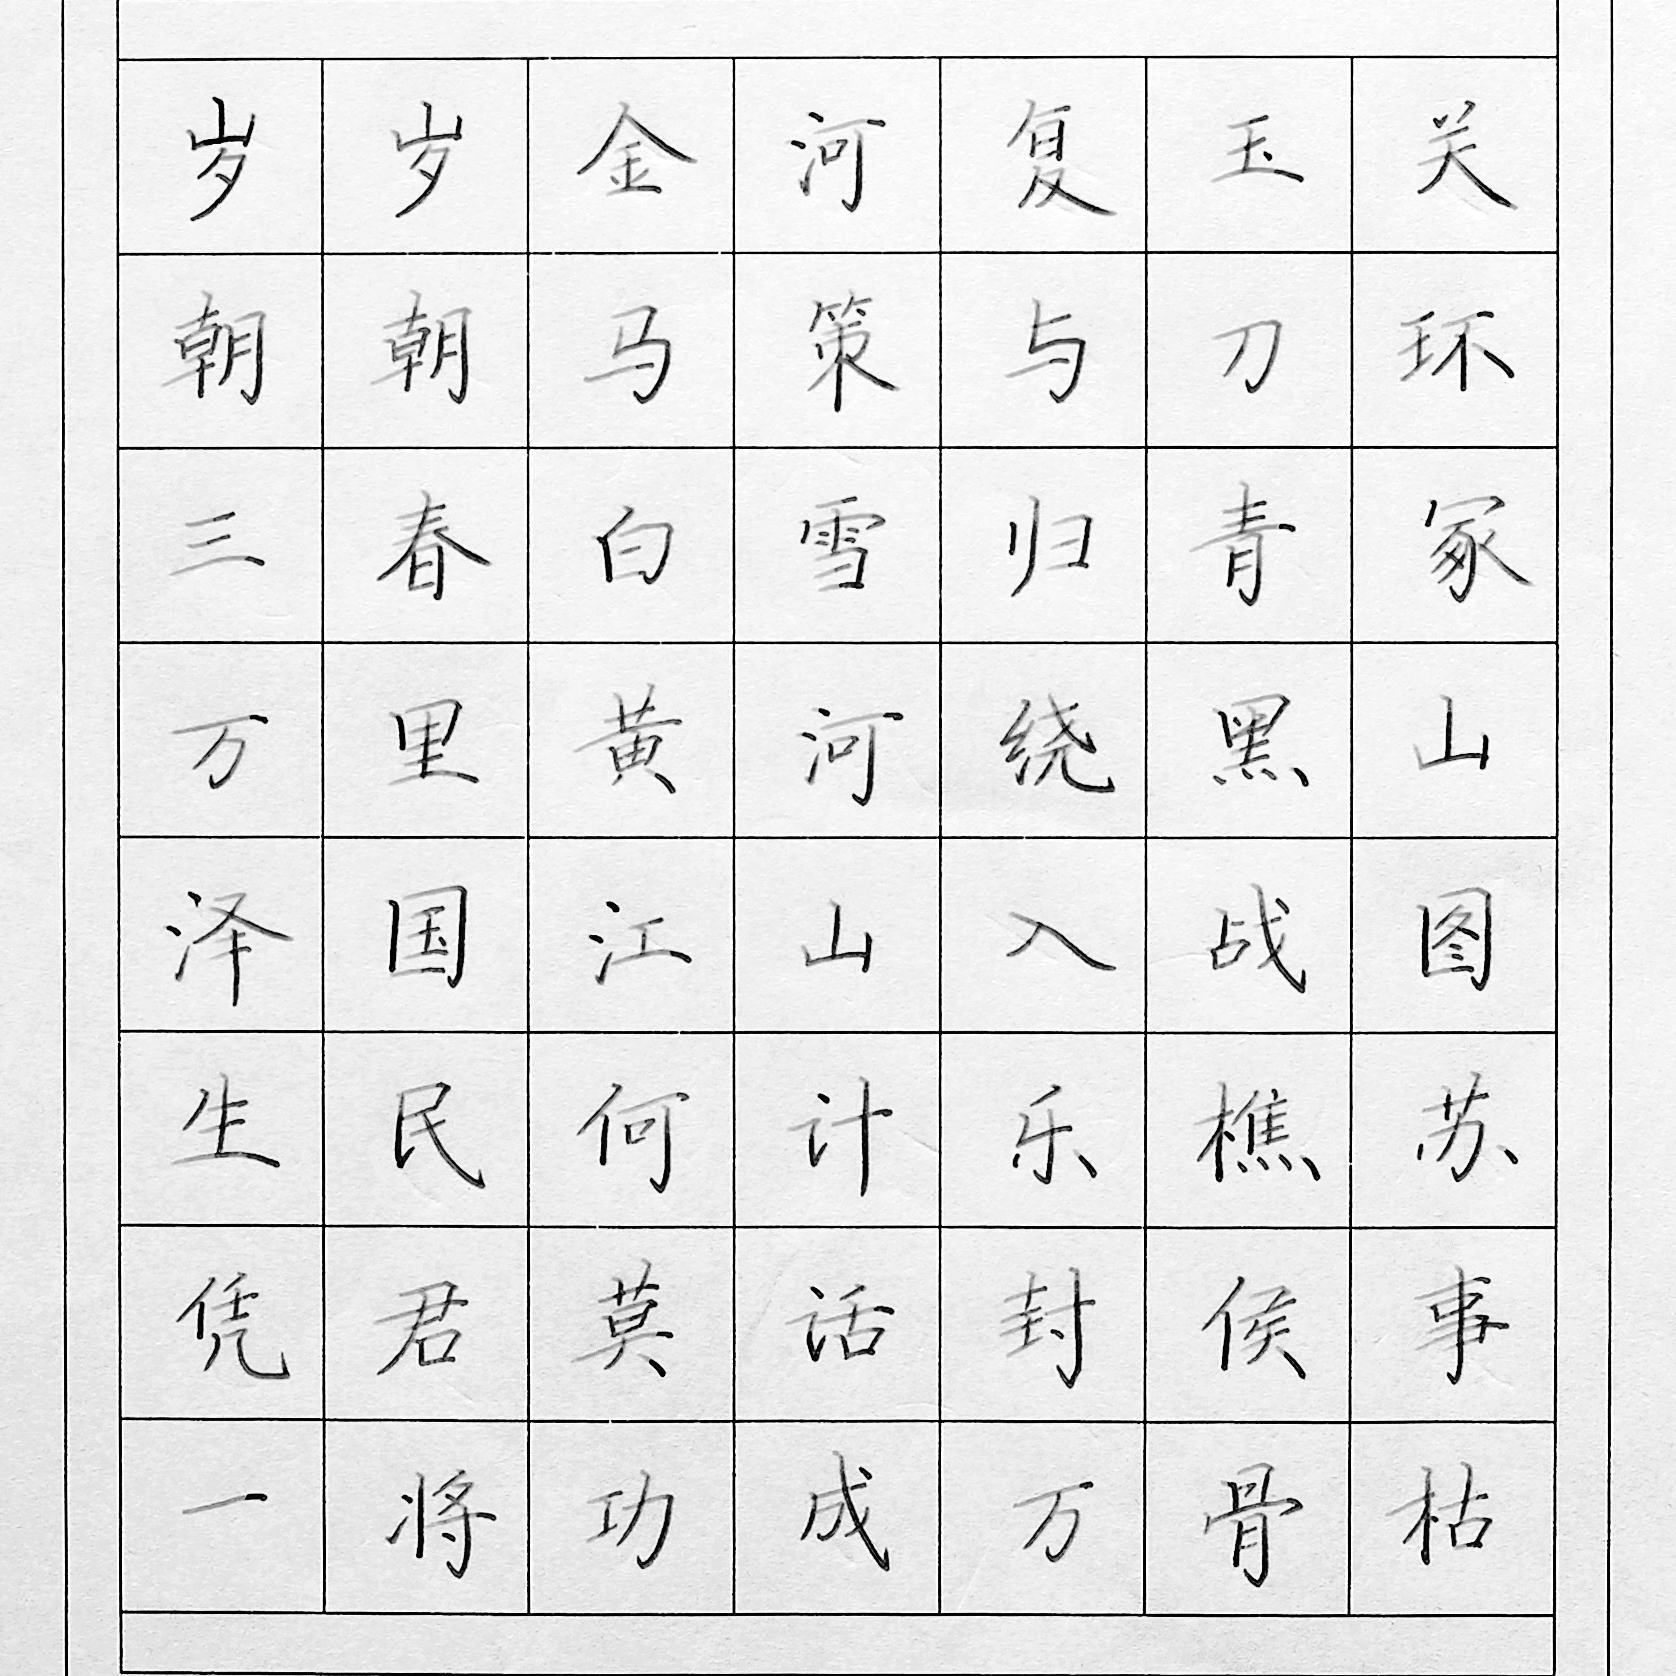 岁岁金河复玉关
朝朝马策与刀环
三春白雪归青冢
万里黄河绕黑山
泽国江山入战图
生民何计乐樵苏
凭君莫话封侯事
一将功成万骨枯